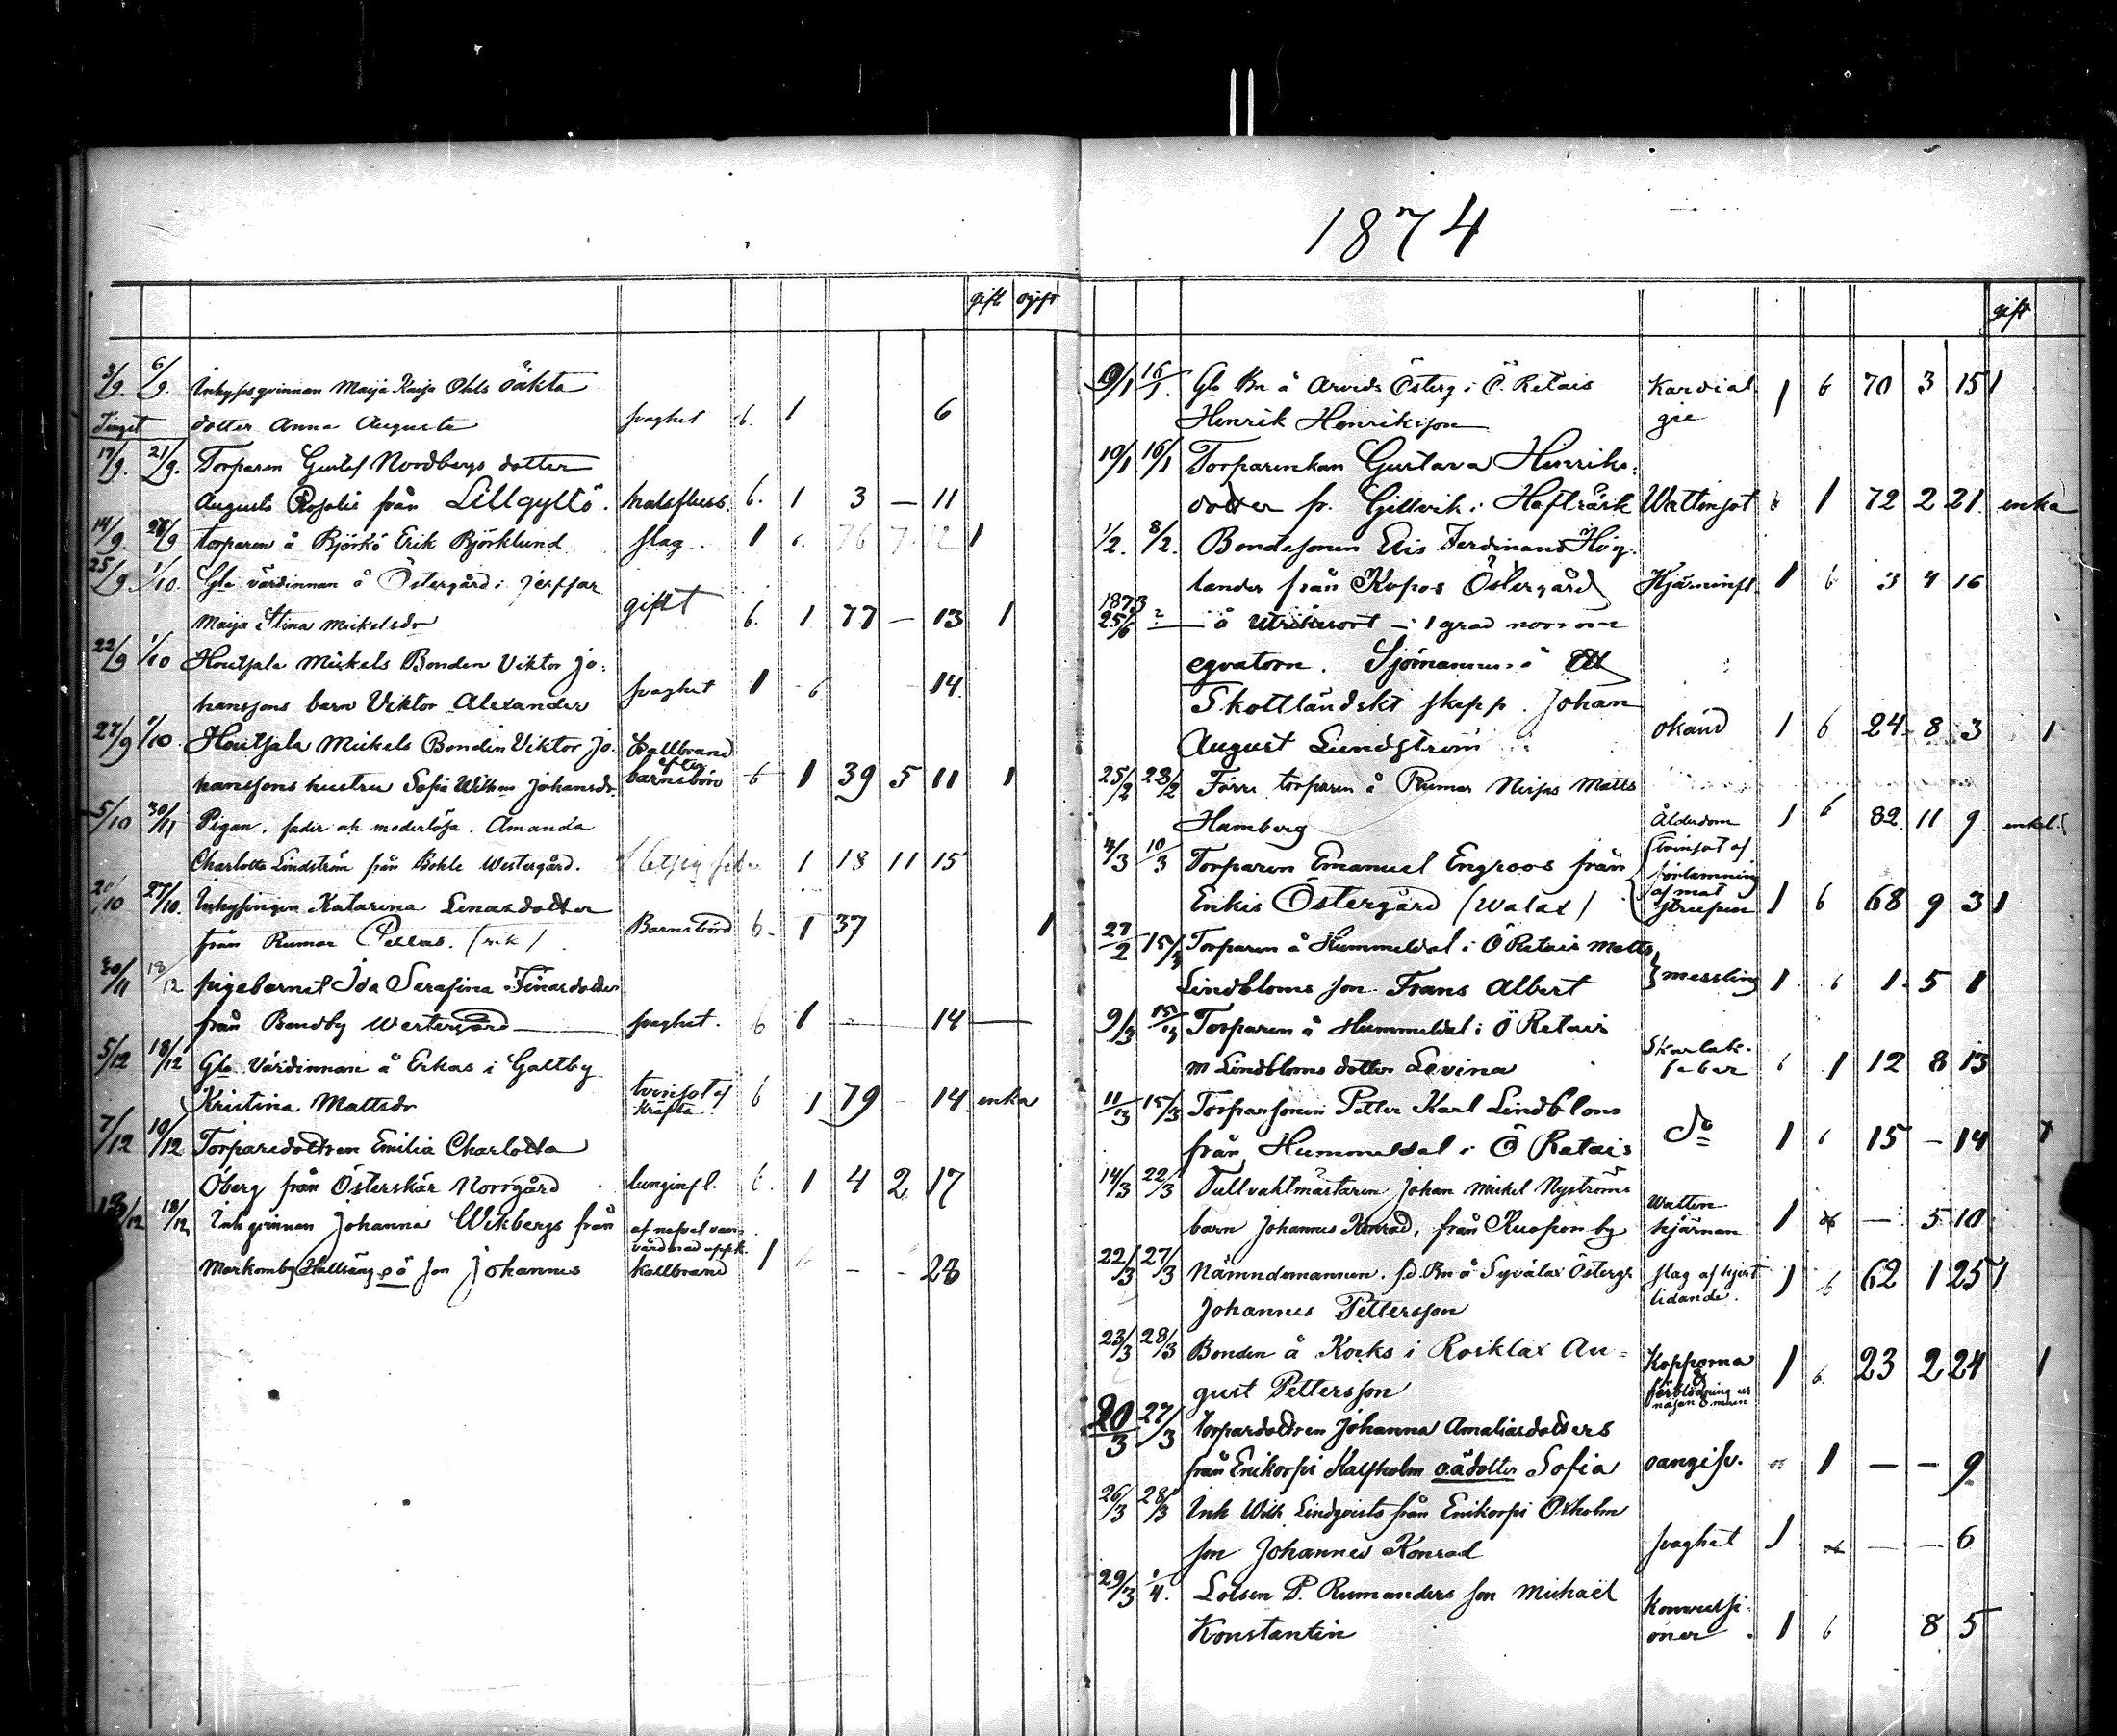 gift ogift
3/9. 6/9. Inhyses qvinnan Maija Kaisa Ohls oäkta
dotter Anna Augusta svaghet 6. 1 6
17/9. 21/9. Torparen Gustaf Nordbergs dotter
Augusta Rosalie från Lillgyltö. halsfluss. 6. 1 3 — 11
14/9. torparen å Björkö Erik Björklund slag 1 6. 76 7 12 1
25/9. 1/10. Gla värdinnan å Östergård i Jerssar
Maija Stina Mickelsdr gift 6. 1 77 — 13 1
22/9 1/10 Houtsala Mickels Bonden Viktor Jo:
hanssons barn Viktor Alexander svaghet 1 6 14
27/9 1/10. Houtsala Mickels Bonden Viktor Jo
hanssons hustru Sofia Wilhna Johansdr. Kallbrand efter barnsbörd 6 1 39 5 11 1
5/10 30/11 Pigan, fader och moderlösa. Amanda
Charlotta Lindström från Bohle Westergård. 1 18 11 15
20/10 27/10. Inhysingen Katarina Lenasdotter
från Rumar Pellas. Barnsbörd 6. 1 37 1
30/11 18/12 pigebarnet Ida Serafina
från Bendby Westergård svaghet. 6 1 — — 14
5/12 18/12 Gla Värdinnan å Erkas i Galtby
Kristina Mattsdr tvinsot af Kräfta 6 1 79 - 14 enka
7/12 10/12 Torparedottren Emilia Charlotta
Öberg från Österskär Norrgård lunginfl. 6. 1 4 2 17
18/12 Inh qvinnan Johanna Wikbergs från af nafvel van-
vårdnad uppk.
Markomby Hallsäng oä son Johannes Kallbrand 1 — - 28
1874
gift
9/1 16/1. Gla Bn å Arvids Österg i Ö. Retais Kardial
Henrik Henriksson gie 1 6 70 3 15 1
10/1 16/1 Torparenkan Gustava Henriks:
dotter fr. Gillvik i Hafträsk Wattensot 6 1 72 2 21 enka
1/2. 8/2. Bondesonen Elis Ferdinand Hög-
lander från Kopos Östergård Hjärninfl. 1 6 3 4 16
1873
25/6 ? — å utrikesort — 1 grad norr om
eqvatorn. Sjömannen å ett
Skottländskt skepp. Johan
August Lundström okänd 1 6 24 8 3 1
25/2 28/2 Förre torparen å Rumar Nisjas Matts
Hamberg Ålderdom 1 6 82 11 9 enkel.
4/3 10/3 Torparen Emanuel Engroos från Tvinsot af
förlamning
Erikis Östergård (Walax) af mat
strupen 1 6 68 9 3 1
27/2 15/3 Torparen å Hummeldal i Ö Retais Matts
Lindbloms son Frans Albert messling 1 6 1 5 1
9/3 15/3 Torparen å Hummeldal i Ö Retais Skarlak-
M Lindbloms dotter Levina feber 6 1 12 8 13
11/3 15/3 Torparsonen Petter Karl Lindblom
från Hummeldal i Ö Retais Do 1 6 15 — 14 1
14/3 22/3 Tullvaktmästaren Johan Mickel Nyströms Watten
barn Johannes Konrad, från Ruopon by hjärnan 1 6 — 5 10
22/3 27/3 Nämndemannen. f.d. Bn å Syvälax Österg. slag af hjert
Johannes Pettersson lidande. 1 6 62 1 25 1
23/3 28/3 Bonden å Korks i Rosklax Au= Kopporna
gust Pettersson & förblödning ur
näsan & munn 1 6. 23 2 24 1
20/3 27/3 torpardottren Johanna Amaliasdotters
från Enikorpi Kalfholm oädotter Sofia oangifv. 6 1 — — 9
26/3 28/3 Inh Wilh Lindqvists från Enikorpi Oxholm
son Johannes Konrad svaghet 1 6 — — 6
29/3 1/4. Lotsen P. Rumanders son Michaël Konvulsi-
Konstantin oner 1 6 8 5